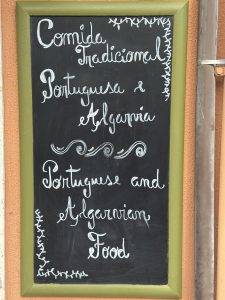 Comida
Tradicional
Portuguesa e
Algarvia
Portuguese and
Algarvian
Food